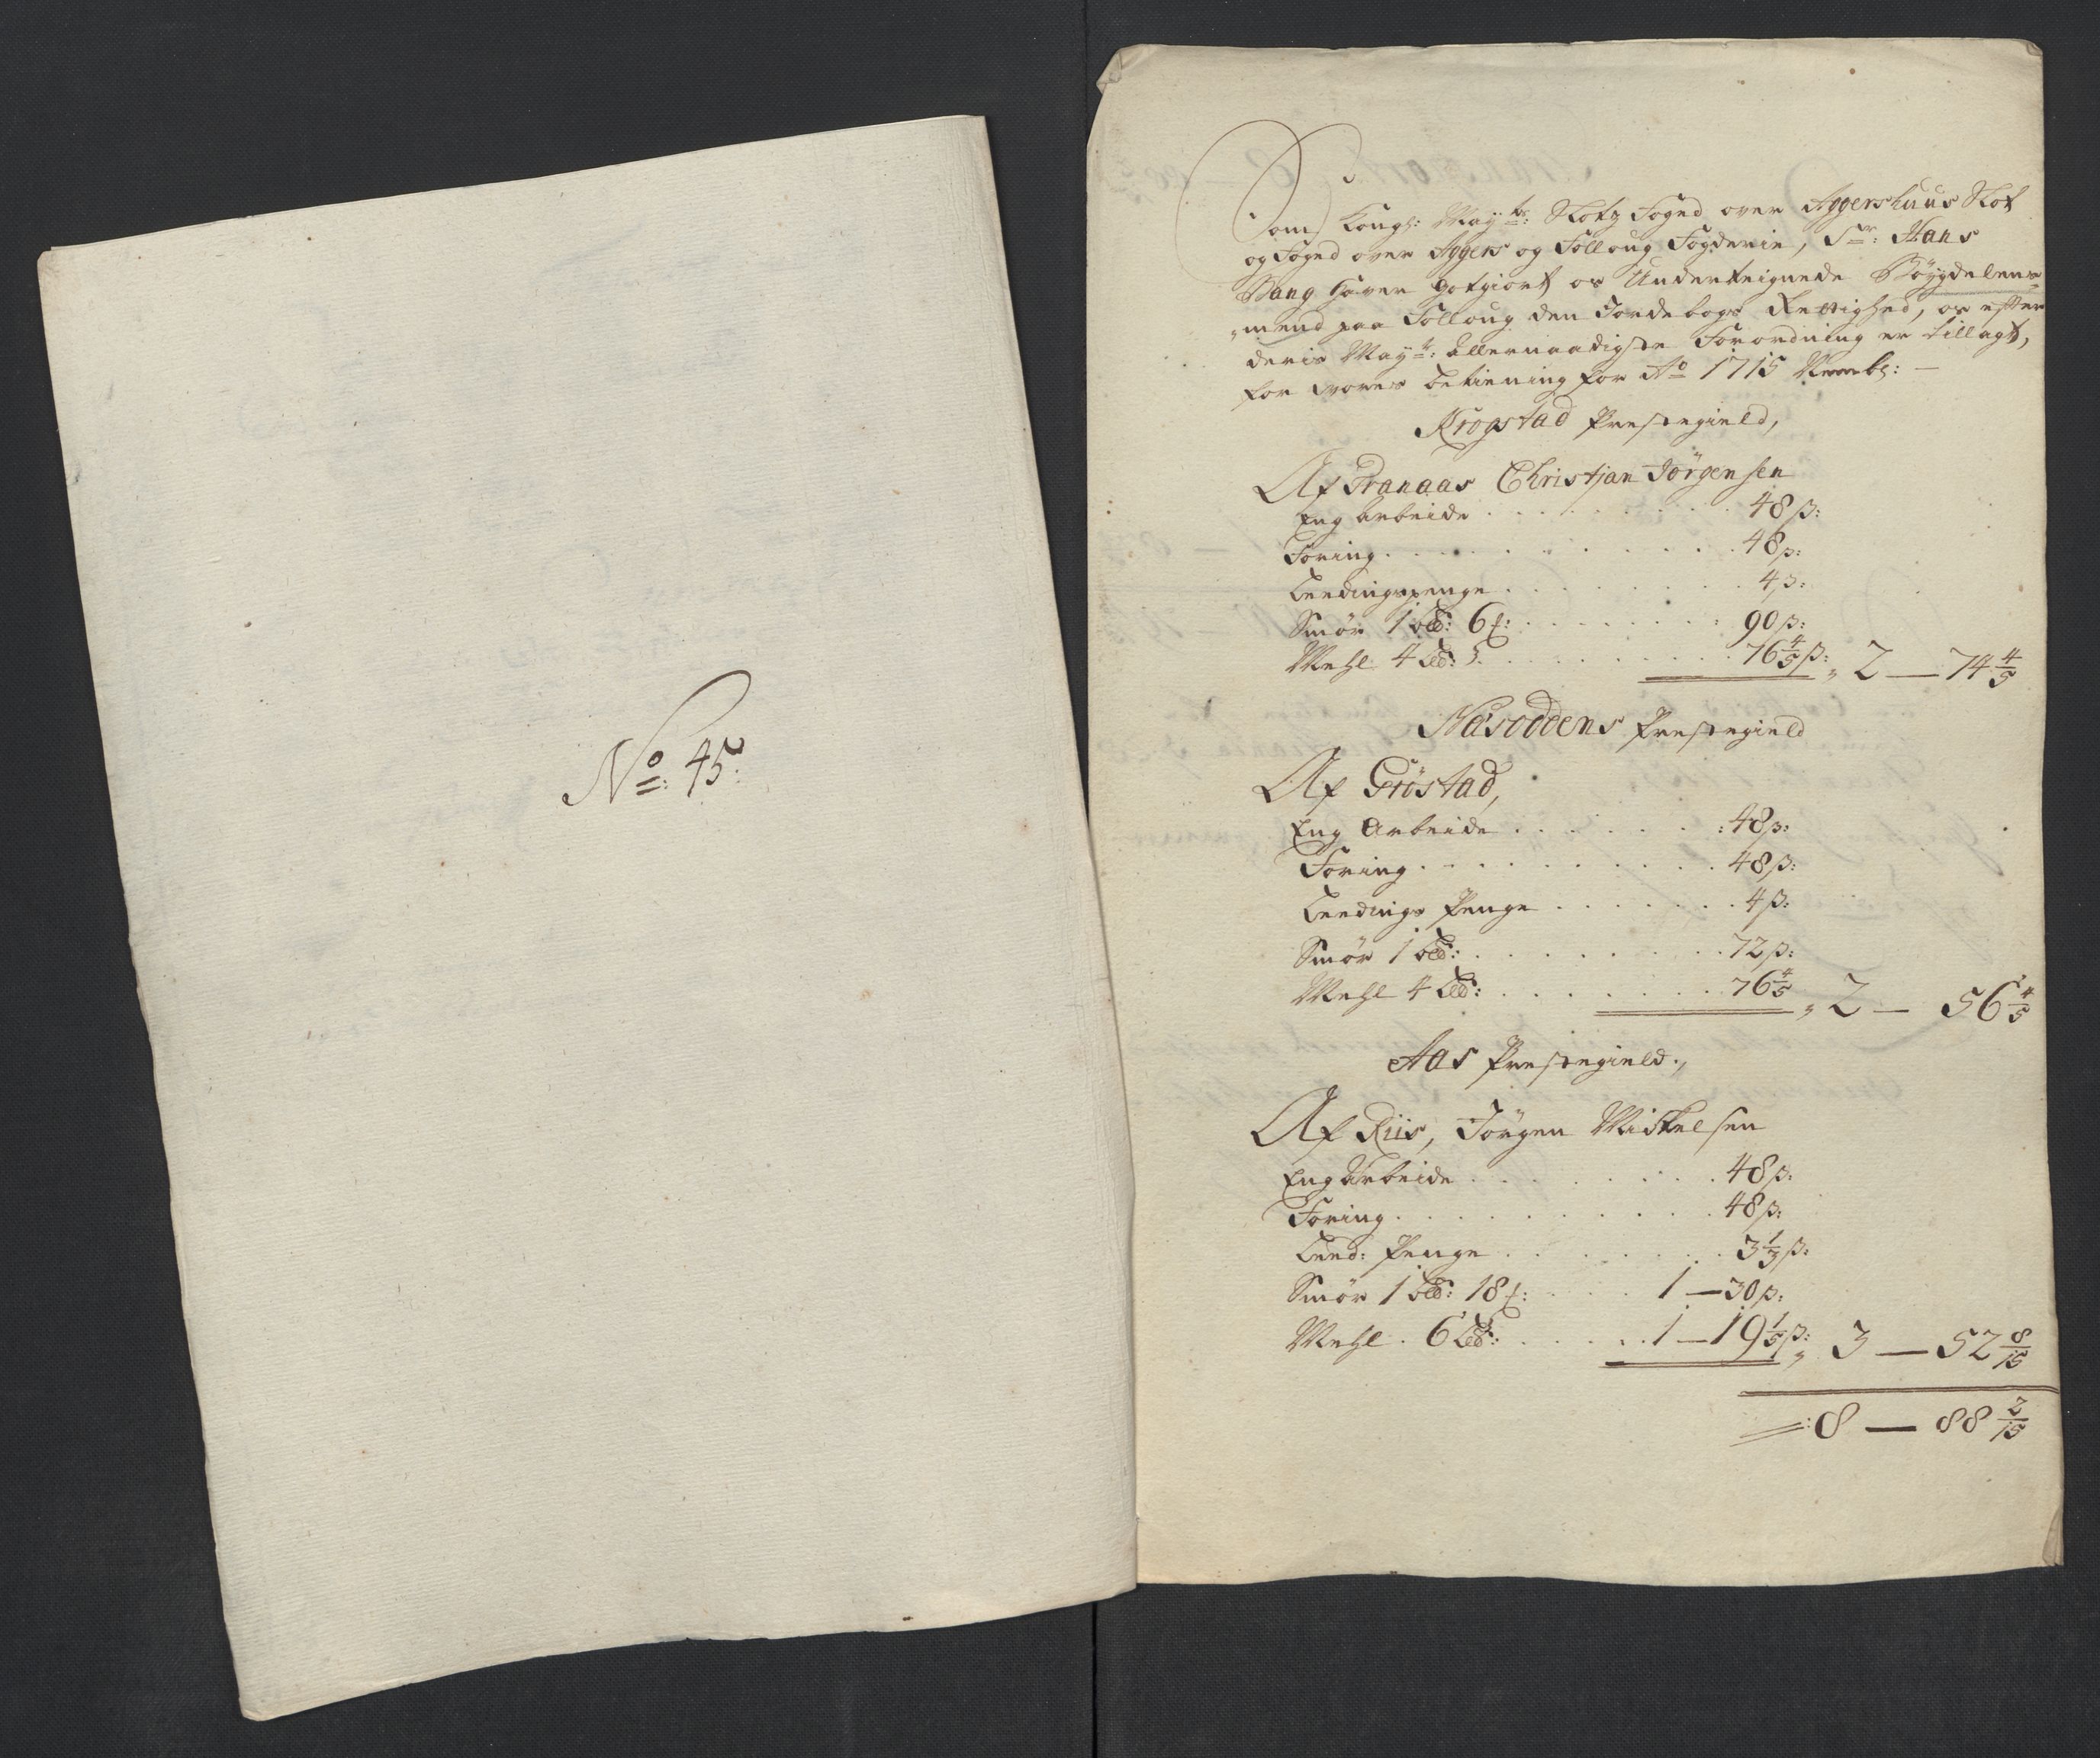 No: 45:
Som Kongl: Mayts: Slotz Foged over Aggershuus Slot
og Foged over Aggers og Folloug Fogderie, Sr: Hans
Bang haver Gotgiort os Underteignede Bøygdelens-
mend paa Folloug den Jordebogs Rettighed, os efter
deris Mayts: allernaadigste Forordning er tillagt,
for vores betiening for Ao 1715
Krogstad Prestegield,
Af Tranaas Christjan Jörgensen
Eng Arbeide 48 ß:
Foring 48 ß:
Leedingspenge 4 ß:
Smør 1 bd: 6 : 90 ß:
Mehl 4 Ld: 76 4/5 ß: 2 — 74 4/5
Næsoddens Prestegield
Af Grøstad,
Eng Arbeide 48 ß:
Foring 48 ß:
Leedings Penge 4 ß:
Smør 1 bd: 72 ß:
Mehl 4 Ld: 76 4/5 2 — 56 4/5
Aas Prestegield.,
Af Riis, Jörgen Mickelsen
Eng Arbeide 48 ß:
Foring 48 ß:
Leed: Penge 3 1/3 ß:
Smør 1 bd: 18 : 1 — 30 ß:
Mehl 6 Ld: 1 — 19 1/5 ß: 3 — 52 8/15
8 — 88 2/15